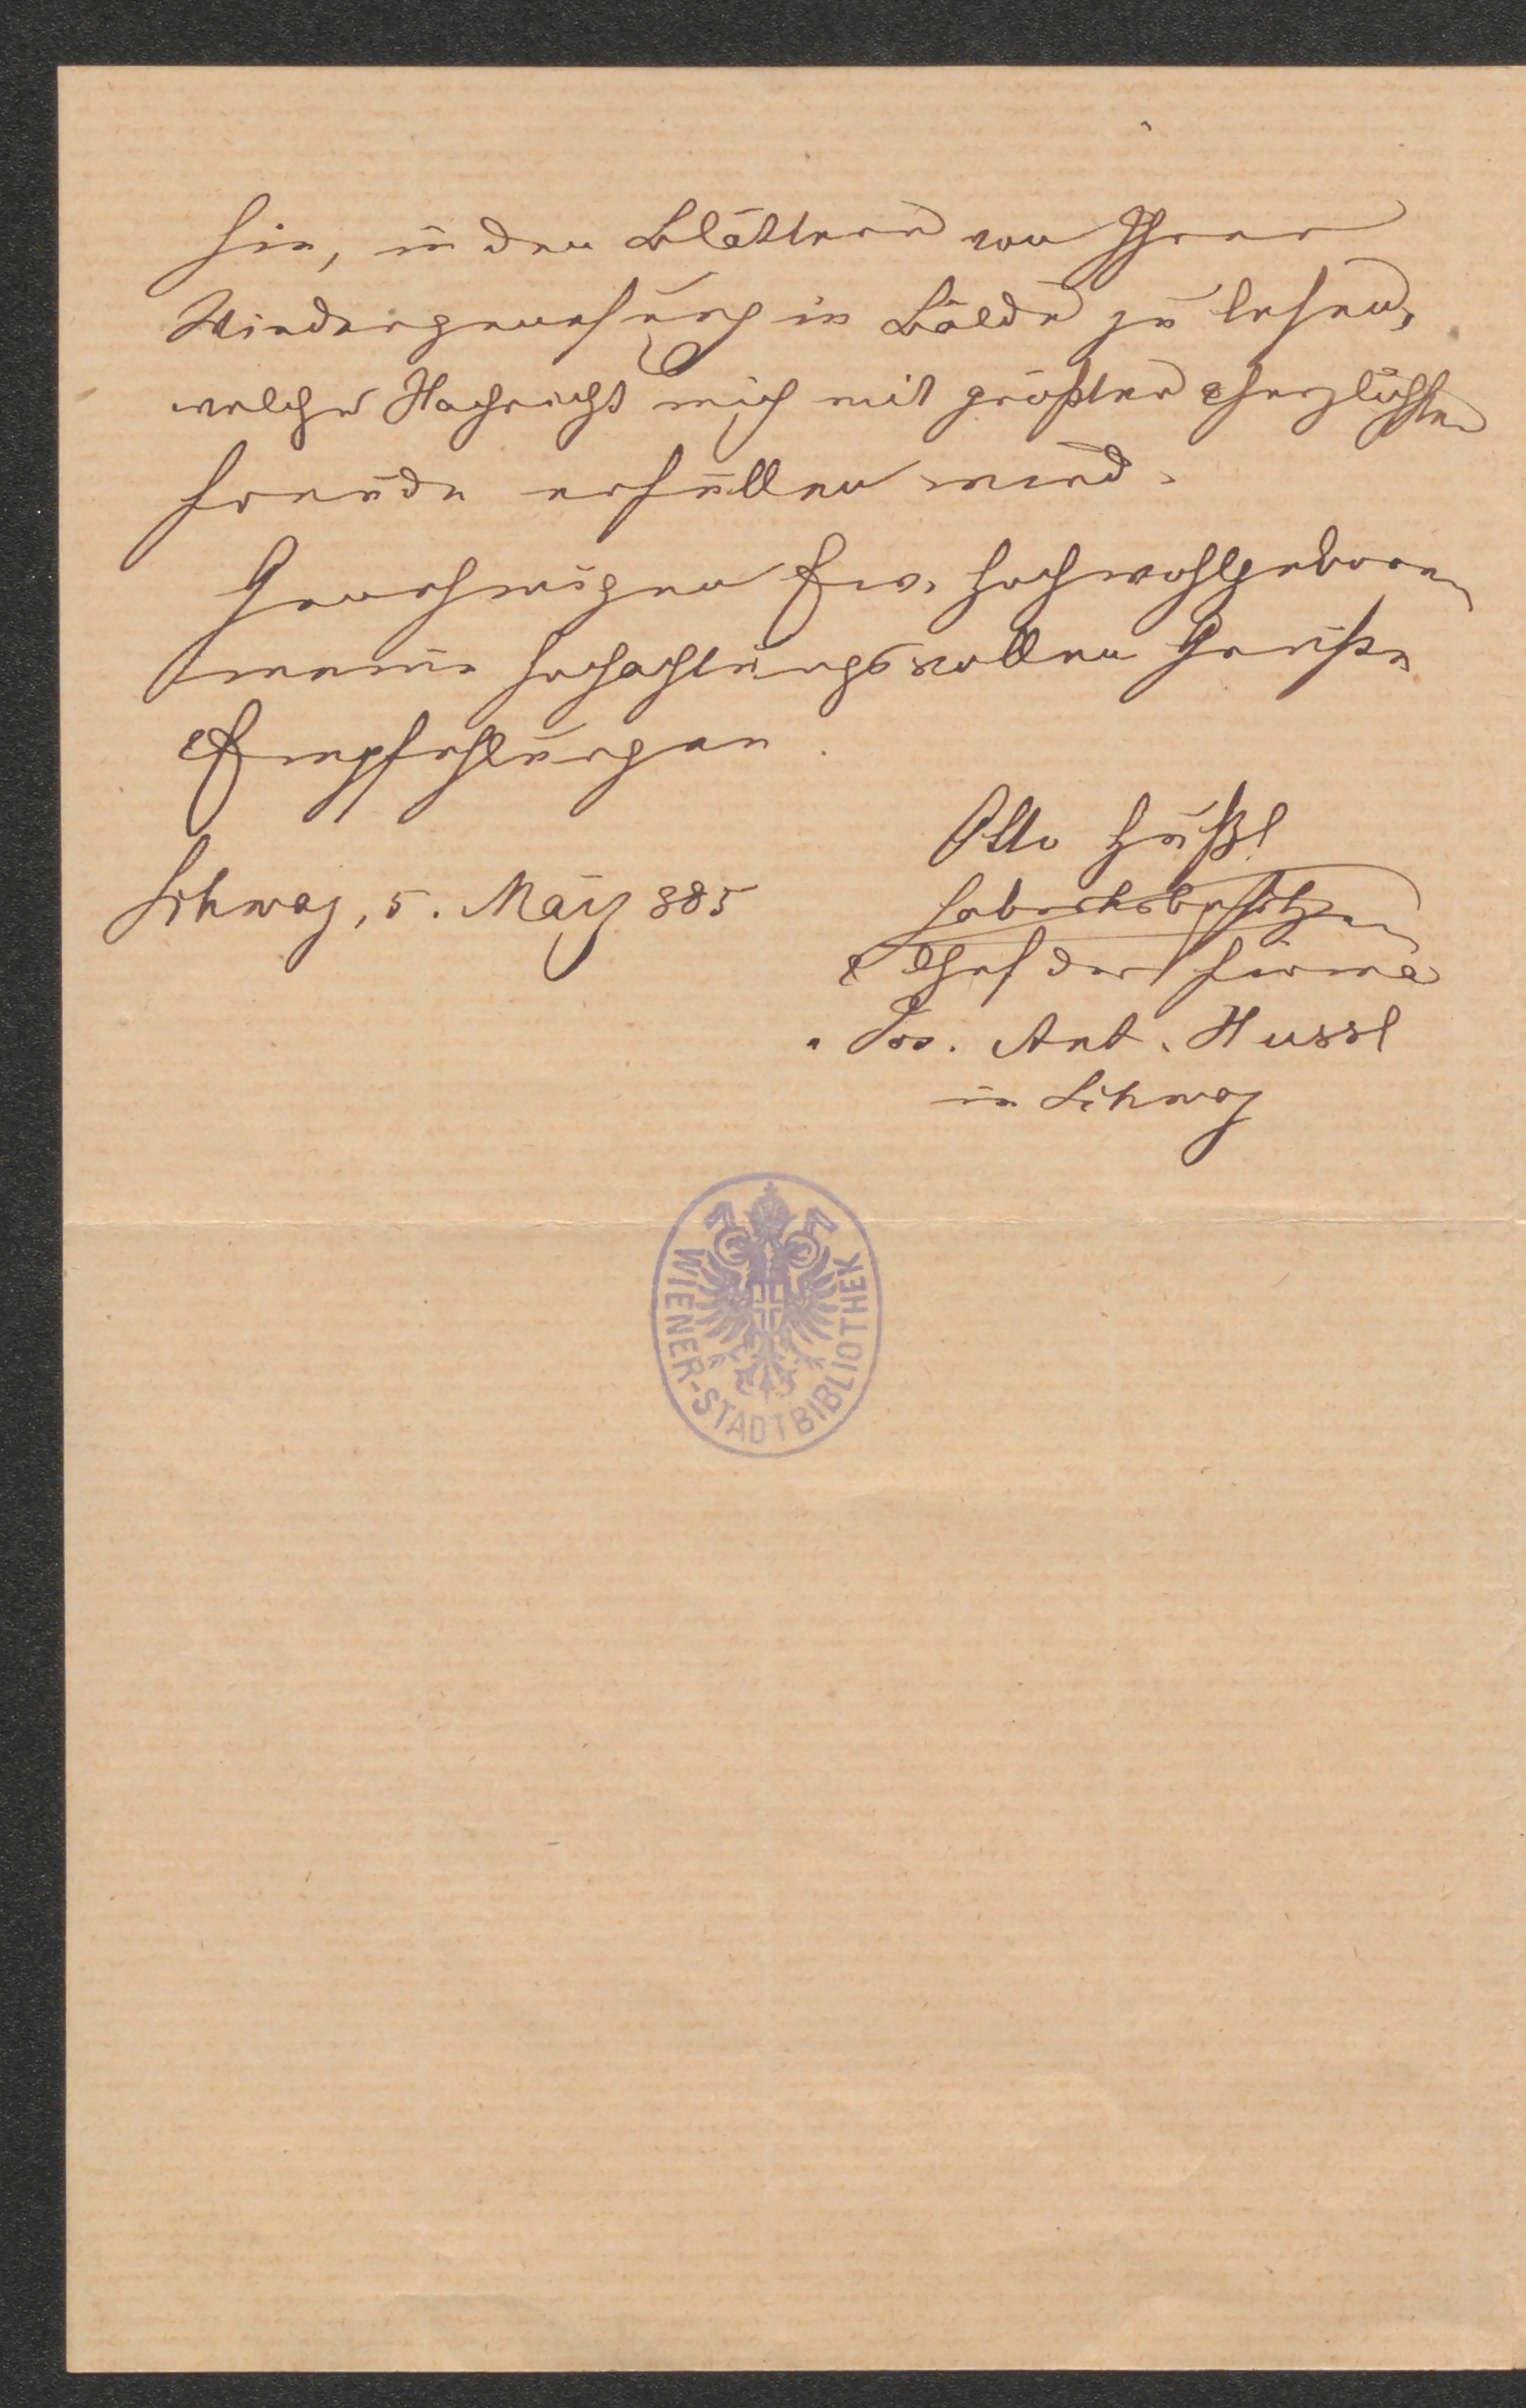 hin, in den Blättern von Ihrer
Wiedergenesung in Bälde zu lesen,
welche Nachricht mich mit größter & herzlichster
Freude erfüllen wird.
Genehmigen Ew. Hochwohlgeboren
meine hochachtungsvollen Grüße
& Empfehlungen.
Otto Hußl
Schwaz, 5. März 885
Fabriksbesitzer
& Chef der Firma
Jos. Ant. Hussl
in Schwaz
WIENER-STADTBIBLIOTHEK